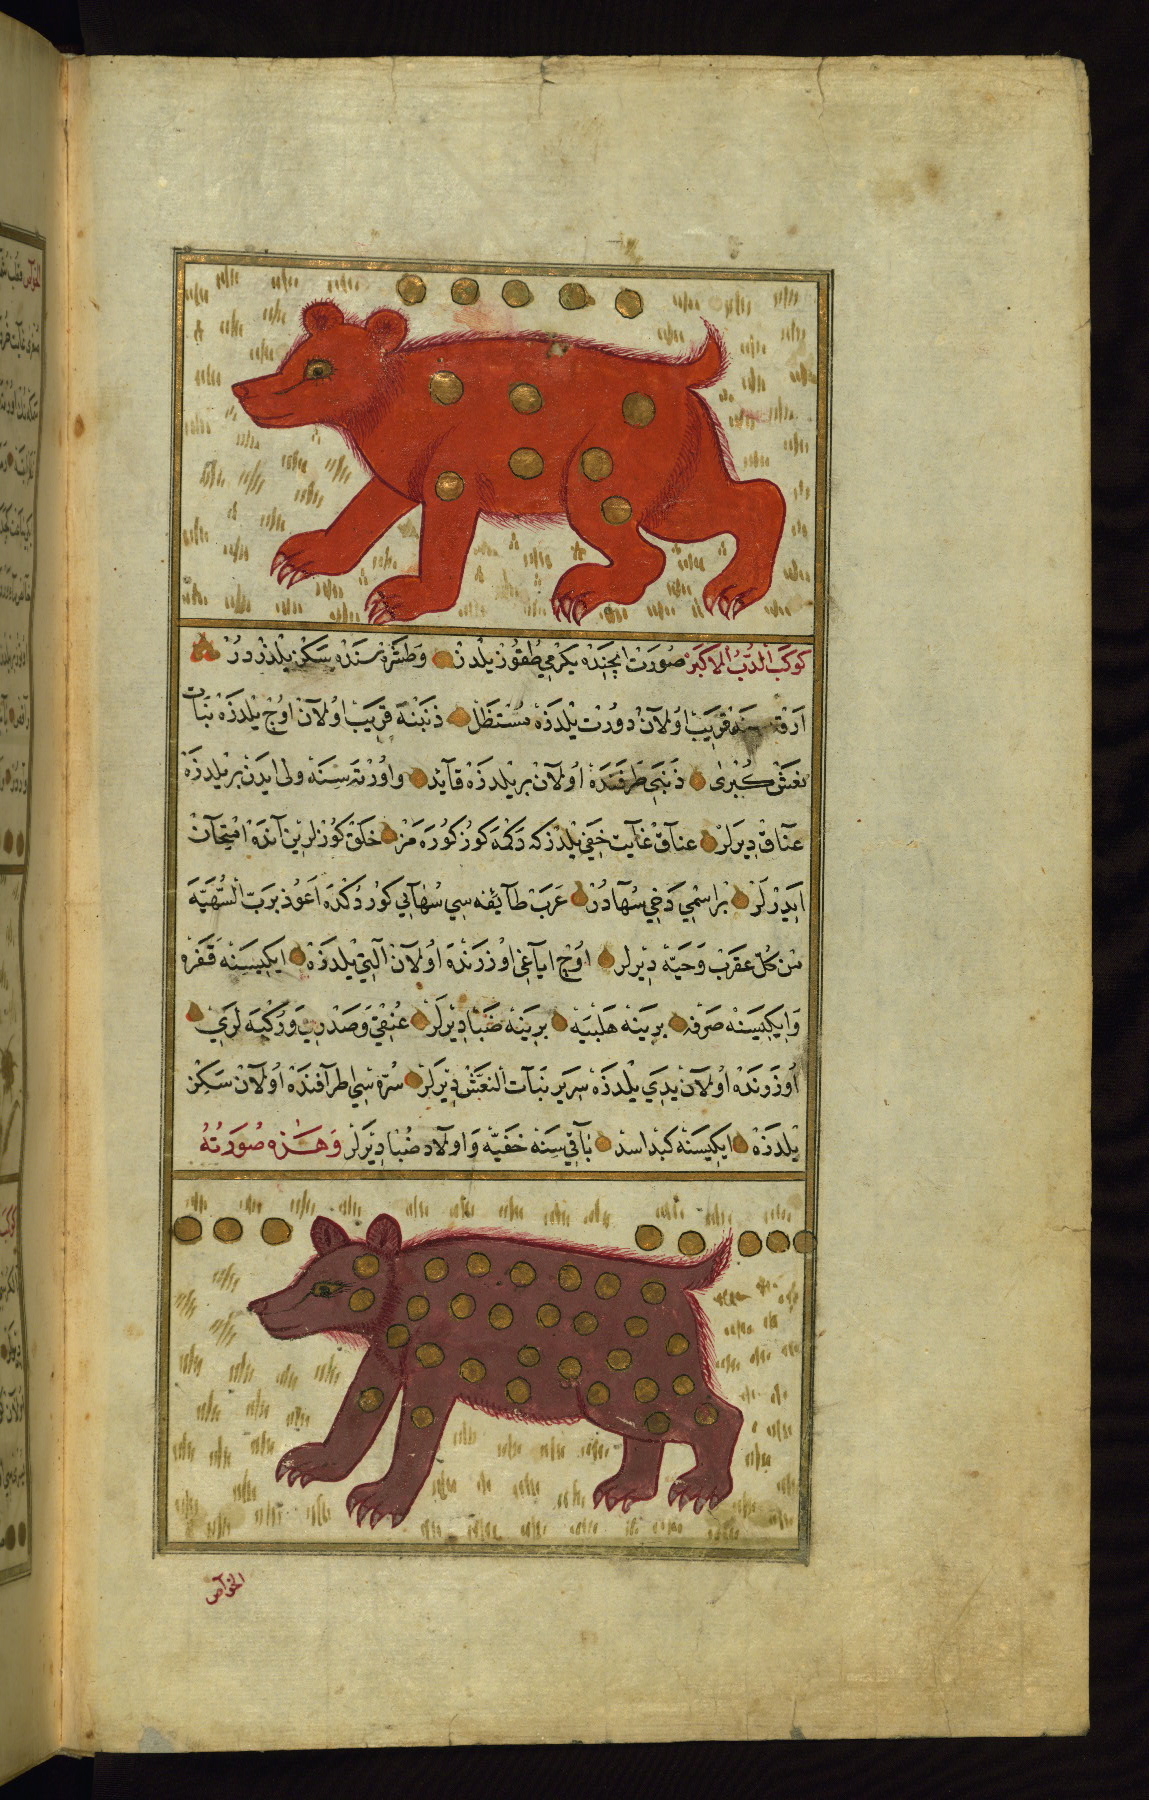 كوكب الدب الاكبر صورت ایچنده یكرمی طقوز یلدز وطشره سنده سكز یلدز در
ارقه سنه قریب اولان دورت یلدزه مستظل ذنبنه قریب اولان اوج یلدزه بنات
نعش كبری ذنبی طرفنده اولان بر یلدزه قآید واورته سنه ولی ایدن بر یلدزه
عناق دیرلر عناق غایت خفی یلدز كه دكمه كوز كوره مز خلق كوزلرین آنده امتحان
ایدرلر بر اسمی دخی سها در عرب طایفه سی سهایی كوردكده اعوذ برب السهیه
من كل عقرب وحیه دیرلر اوج ایاغی اوزرنده اولان التی یلدزه ایكیسنه قفزه
وایكیسنه صرفه برینه هلبیه برینه ضبا دیرلر عنقی وصدری وركبه لری
اوزرنده اولان یدی یلدزه سریر بنات النعش دیرلر سره سی اطرافنده اولان سكز
یلدزه ایكیسنه كبد اسد باقی سنه خفیه واولاد ضبا دیرلر وهذه صورته
الخواص